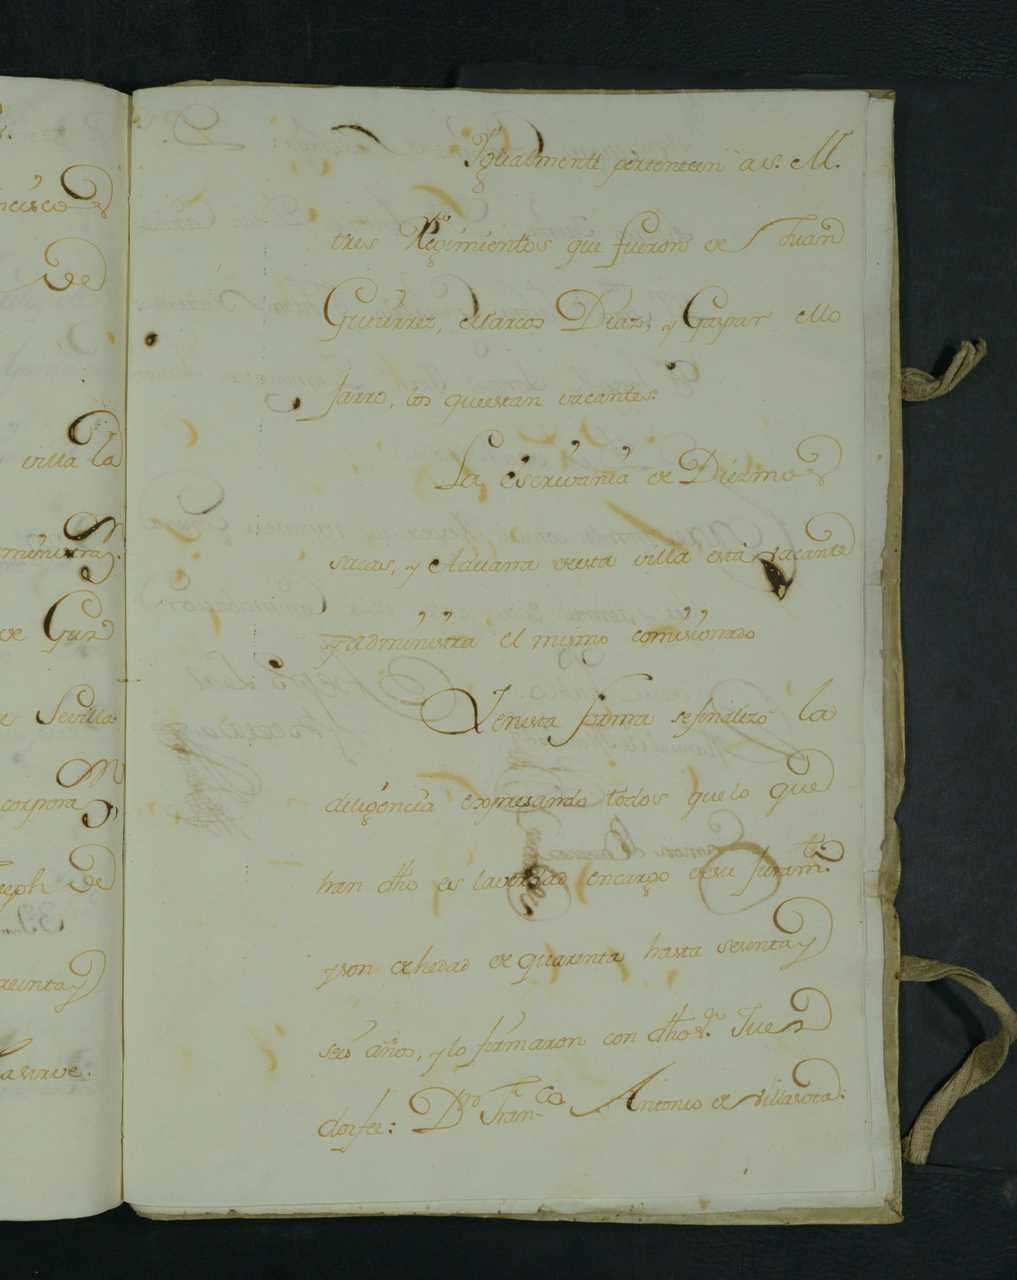 s.
ncisco
de
villa la
ministra
de Gut
de Sevilla
corpora
Joseph de
treinta y
la sirve.
Ygualmente pertenecen a S. M.
tres Regimientos que fueron de Juan
Gutierrez, Marcos Diaz, y Gaspar Mo
jarro, los que estan vacantes.
La escrivania de Diezmos
sacas, y Aduana de esta villa està vacante
y administra el mismo comisionado
Y en esta forma se finalizo la
diligencia expresando todos que lo que
han dho es la verdad encargo de su Juram.to
y son de hedad de quarenta hasta sesenta y
seis años, y lo firmaron con dho s.r Juez
doy fee: D.n Fran.co Antonio de Villasota: